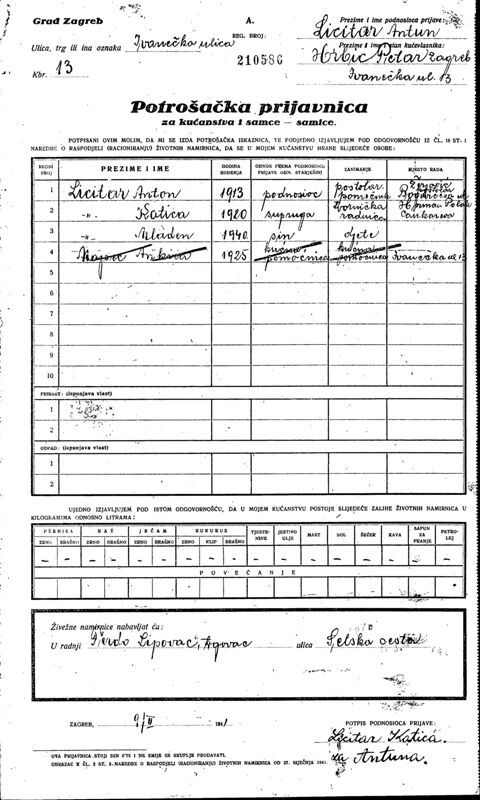 Grad Zagreb
A.
Prezime i ime podnosioca prijave:
Licitar Antun
Ulica, trg ili ina oznaka Ivanečka ulica
REG. BROJ:
210586
Prezime i ime stan kućevlasnika:
Hrbić Petar Zagreb
Kbr. 13
Ivanečka ul. 13
Potrošačka prijavnica
za kućanstva i samce — samice.
POTPISANI OVIM MOLIM, DA MI SE IZDA POTROŠAČKA ISKAZNICA, TE PODJEDNO IZJAVLJUJEM POD ODGOVORNOŠĆU IZ ČL. 18 ST. 1
NAREDBE O RASPODJELI (RACIONIRANJU) ŽIVOTNIH NAMIRNICA, DA SE U MOJEM KUĆANSTVU HRANE SLIJEDEĆE OSOBE:
REDNI BROJ PREZIME I IME GODINA ROĐENJA ODNOS PREMA PODNOSIOCU PRIJAVE ODN. STARJEŠINI ZANIMANJE MJESTO RADA
1 Licitar Anton 1913 podnosioc postolar. pomoćnik
2 -"- Katica 1920 supruga radnica
3 -"- Mladen 1940 sin dijete
4 Ankica 1925 kućna pomoćnica kućna pomoćnica Ivanečka ul. 13
5
6
7
8
9
10
PRIRAST: (ispunjava vlast)
1
2
OTPAD: (ispunjava vlast)
1
2
UJEDNO IZJAVLJUJEM POD ISTOM ODGOVORNOŠĆU, DA U MOJEM KUĆANSTVU POSTOJE SLIJEDEĆE ZALIHE ŽIVOTNIH NAMIRNICA U
KILOGRAMIMA ODNOSNO LITRAMA:
PŠENICA RAŽ JEČAM KUKURUZ TJESTENINE JESTIVO ULJE MAST SOL ŠEĆER KAVA SAPUN ZA PRANJE PETROLEJ
ZRNO BRAŠNO ZRNO BRAŠNO ZRNO BRAŠNO ZRNO KLIP BRAŠNO
– – – – – – – – – – – – – – – – –
POVEĆANJE
Živežne namirnice nabavljat ću:
U radnji Lipovac, Agovac ulica Selska cesta
ZAGREB, 9/II 1941
POTPIS PODNOSIOCA PRIJAVE:
Licitar Katica
za Antuna.
OVA PRIJAVNICA STOJI DIN 0'75 I NE SMIJE SE SKUPLJE PRODAVATI.
OBRAZAC K ČL. 2 ST. 5 NAREDBE O RASPODJELI (RACIONIRANJU) ŽIVOTNIH NAMIRNICA OD 27. SIJEČNJA 1941.